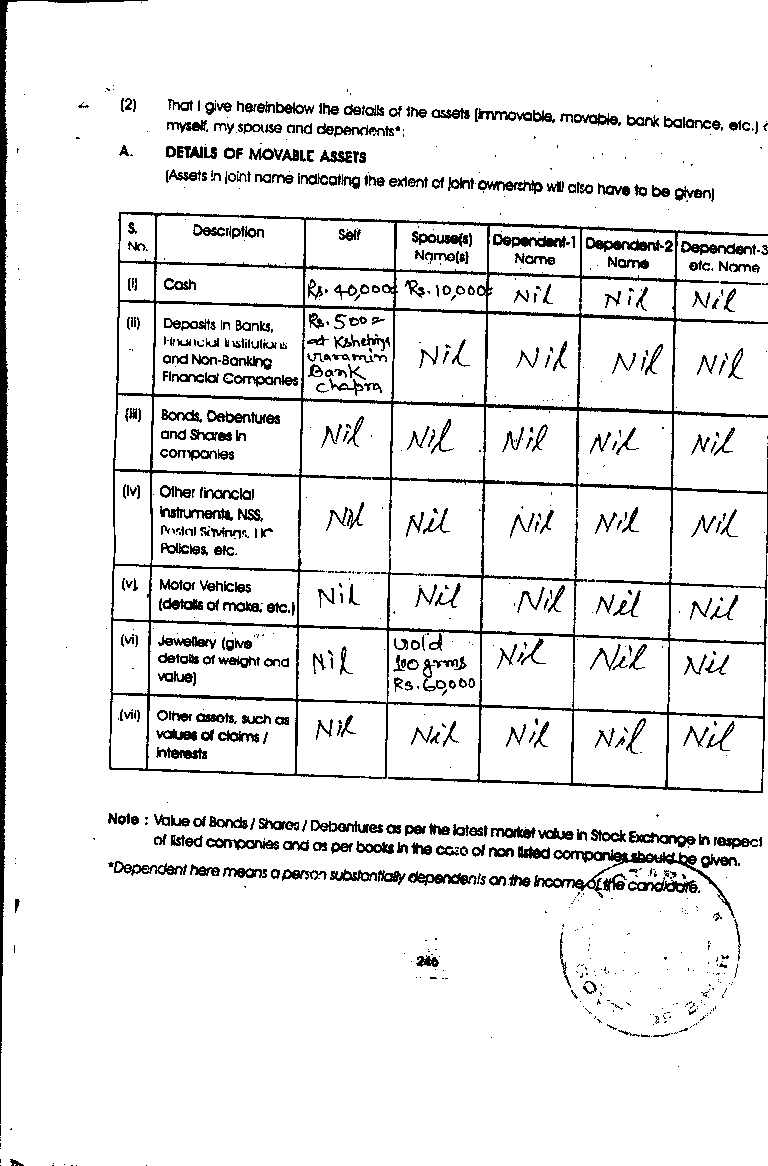 (2) That I give hereinbelow the details of the assets (immovable, movable, bank balance, etc.)
myself, my spouse and dependents*:
A. DETAILS OF MOVABLE ASSETS
(Assets in joint name indicating the extent of joint ownership will also have to be given)
S. No. Description Self Spouse(s) Name(s) Dependent-1 Name Dependent-2 Name Dependent-3 etc. Name
(i) Cash Rs. 40,000 Rs. 10,000 Nil Nil Nil
(ii) Deposits in Banks, Rs. 500=
Financial Institutions at Kshetriya
and Non-Banking Nil Nil Nil Nil
Financial Companies Bank
Chapra
(iii) Bonds, Debentures
and Shares in Nil Nil Nil Nil Nil
companies
(iv) Other financial
instruments, NSS, Nil Nil Nil Nil Nil
Postal Savings, LIC
Policies, etc.
(v) Motor Vehicles Nil Nil Nil Nil Nil
(details of make, etc.)
(vi) Jewellery (give Gold
details of weight and Nil 100 grms Nil Nil Nil
value) Rs. 60,000
(vii) Other assets, such as
values of claims / Nil Nil Nil Nil Nil
interests
Note : Value of Bonds / Shares / Debentures as per the latest market value in Stock Exchange in respect
of listed companies and as per books in the case of non listed companies should be given.
*Dependent here means a person substantially dependents on the income of the candidate.
246